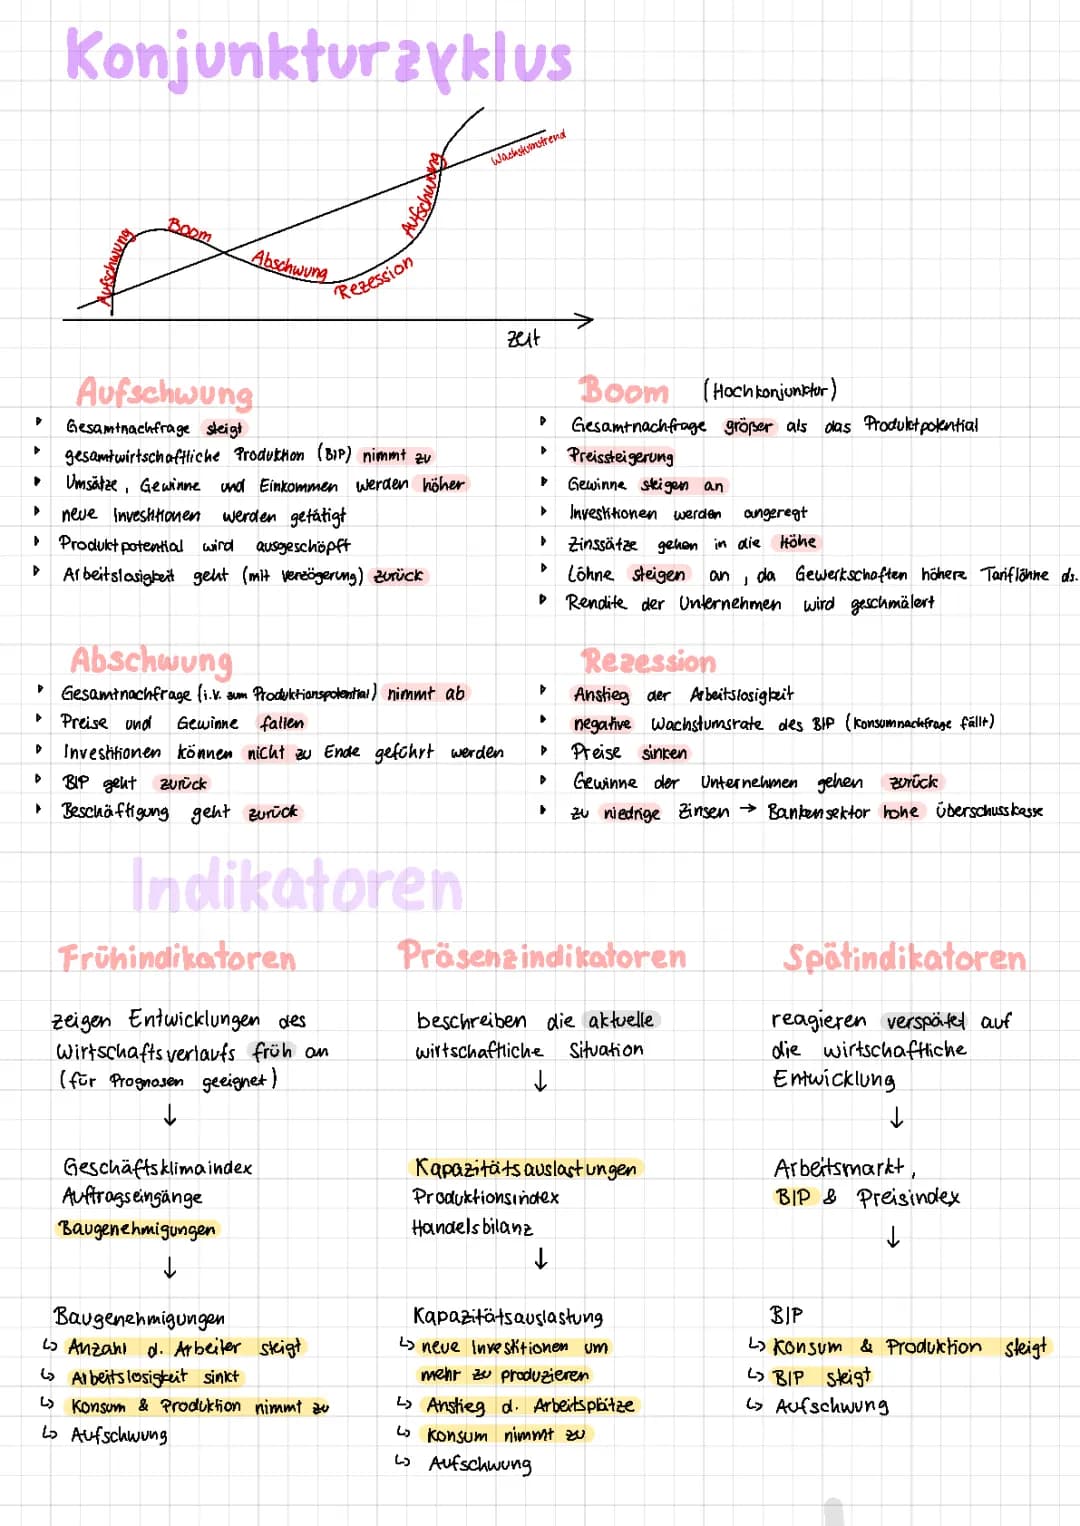 Konjunkturzyklus
Aufschwung
Boom
Abschwung
Rezession
Aufschwung
Wachstumstrend
Zeit
Aufschwung
▸ Gesamtnachfrage steigt
▸ gesamtwirtschaftliche Produktion (BIP) nimmt zu
▸ Umsätze, Gewinne und Einkommen werden höher
▸ neue Investitionen werden getätigt
▸ Produktpotential wird ausgeschöpft
▸ Arbeitslosigkeit geht (mit Verzögerung) zurück
Boom (Hochkonjunktur)
▸ Gesamtnachfrage größer als das Produktpotential
▸ Preissteigerung
▸ Gewinne steigen an
▸ Investitionen werden angeregt
▸ Zinssätze gehen in die Höhe
▸ Löhne steigen an, da Gewerkschaften höhere Tariflöhne ds.
▸ Rendite der Unternehmen wird geschmälert
Abschwung
▸ Gesamtnachfrage (i.V. zum Produktionspotential) nimmt ab
▸ Preise und Gewinne fallen
▸ Investitionen können nicht zu Ende geführt werden
▸ BIP geht zurück
▸ Beschäftigung geht zurück
Rezession
▸ Anstieg der Arbeitslosigkeit
▸ negative Wachstumsrate des BIP (Konsumnachfrage fällt)
▸ Preise sinken
▸ Gewinne der Unternehmen gehen zurück
▸ zu niedrige Zinsen → Bankensektor hohe Überschusskasse
Indikatoren
Frühindikatoren
zeigen Entwicklungen des
Wirtschaftsverlaufs früh an
(für Prognosen geeignet)
↓
Geschäftsklimaindex
Auftragseingänge
Baugenehmigungen
↓
Baugenehmigungen
↳ Anzahl d. Arbeiter steigt
↳ Arbeitslosigkeit sinkt
↳ Konsum & Produktion nimmt zu
↳ Aufschwung
Präsenzindikatoren
beschreiben die aktuelle
wirtschaftliche Situation
↓
Kapazitätsauslastungen
Produktionsindex
Handelsbilanz
↓
Kapazitätsauslastung
↳ neue Investitionen um
mehr zu produzieren
↳ Anstieg d. Arbeitsplätze
↳ Konsum nimmt zu
↳ Aufschwung
Spätindikatoren
reagieren verspätet auf
die wirtschaftliche
Entwicklung
↓
Arbeitsmarkt,
BIP & Preisindex
↓
BIP
↳ Konsum & Produktion steigt
↳ BIP steigt
↳ Aufschwung